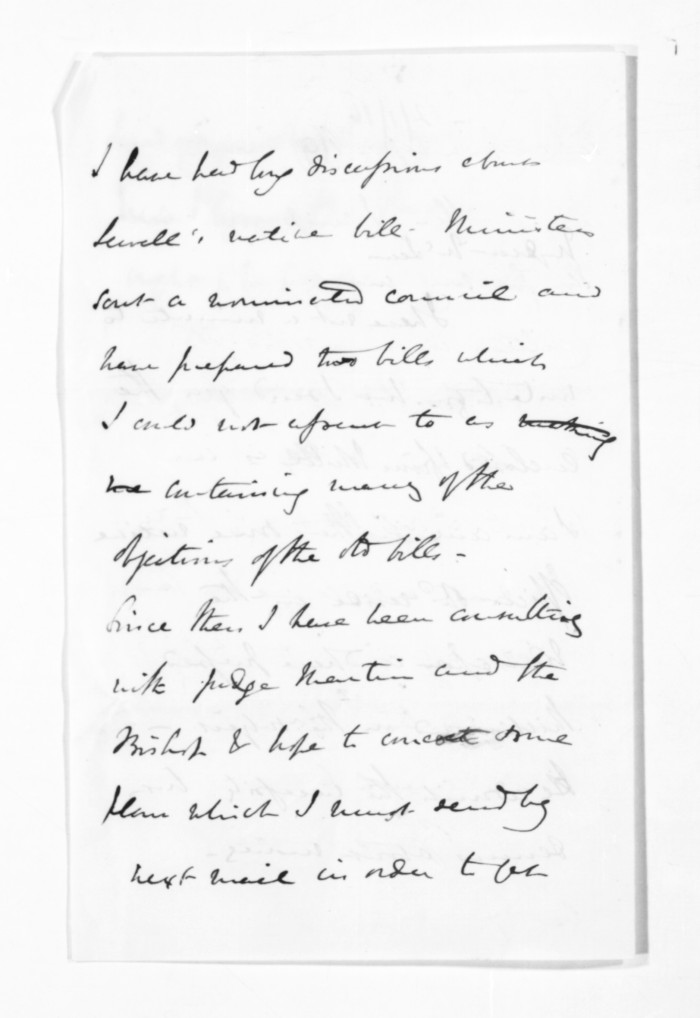 I have had long discussions about
Sewell's native bill. Ministers
want a nominated council and
have prepared two bills which
I could not assent to as making
me containing many of the
objections of the old bills -
Since then I have been consulting
with Judge Martin and the
Bishop & hope to concoct some
plan which I must send by
next mail in order to get